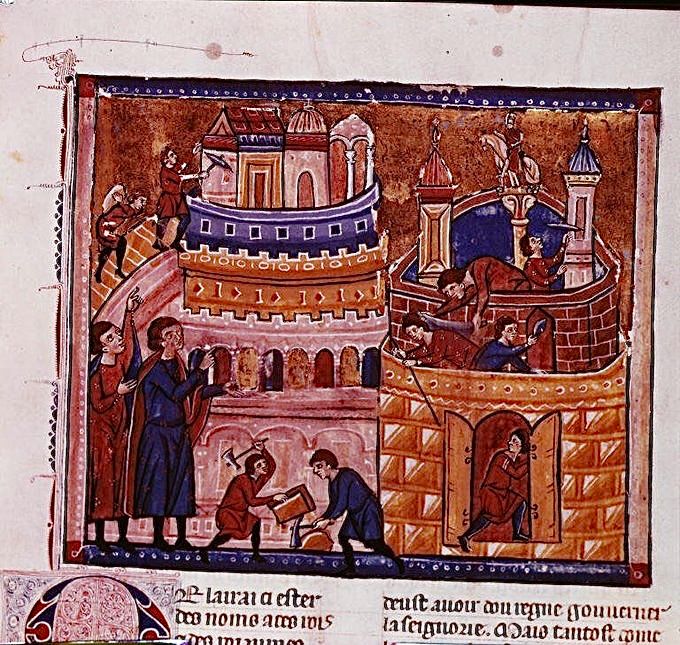 OR lairai ci ester
des noms a ces rois
deust auoir dou regne gouuerner
la seignorie. Mais tantost come